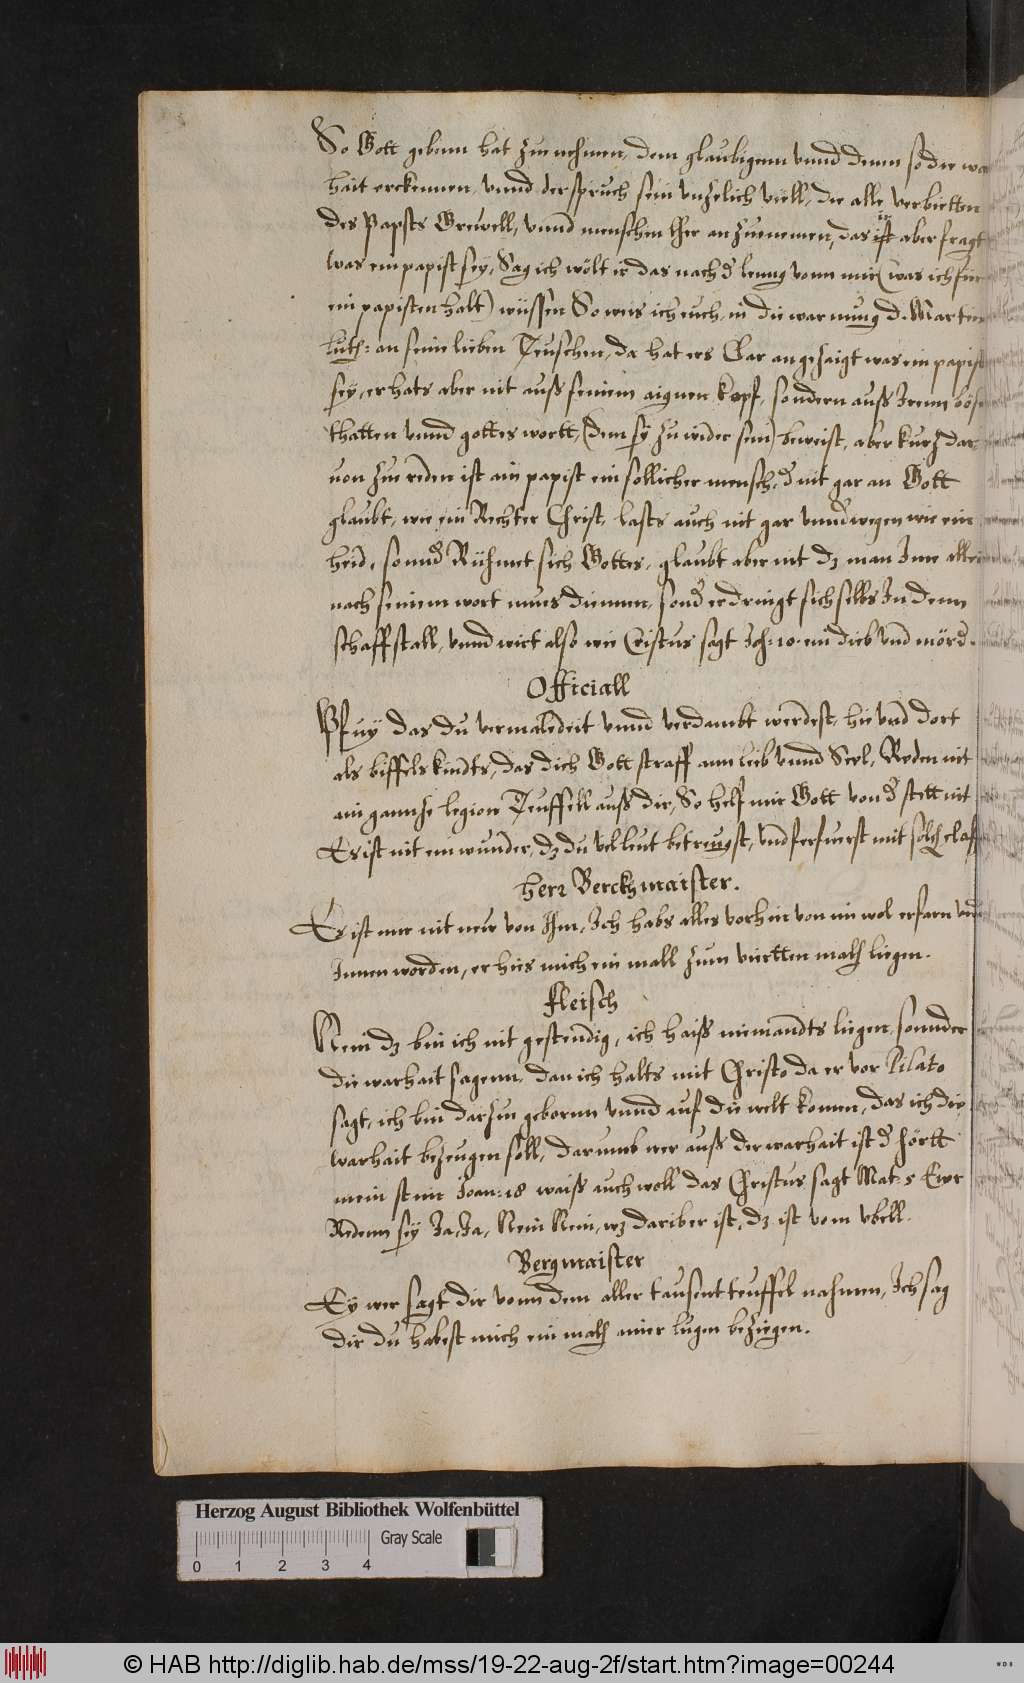 So Gott geben hat zue nehmen, dem glaubigenn vnnd denen so die wa
hait erckennen, vnnd der spruch sein vnzelich viell, die alle verbietten
des Papsts Grewell, vnnd menschen lher an zuenemen, das ist aber fragt
was ein papist sey, Sag ich wölt ir das nach d leng vonn mir (was ich für
ein papisten halt) wüssen So weis ich euch, in die warnung D. Martin
Luth: an seine lieben Teuschen, da hat ers Clar angezaigt was ein papist
sey, er hats aber nit auss seinem aignen kopf, sondern auss Irenn bös
thatten vnnd gottes wortt, (dem sy zu wider sein) beweist, aber kurz dar
uon zue reden ist ain papist ein sollicher mensch, d nit gar an Gott
glaubt, wie ein Rechter Christ, lasts auch nit gar vnnderwegen wie ein
heid, sonnd Rühmet sich Gottes, glaubt aber nit dz man Ime allei
nach seinem wort mues diennen, sond er dringt sich selbs In denn
schaffstall, vnnd wirt also wie Cristus sagt Joh: 10. ein dieb vnd mörd.
Officiall
Pfuy das du vermaledeit vnnd verdambt werdest, hie vnd dort
als biffelskindts, das dich Gott straff ann leib vnnd Seel, Reden nit
ain gannse legion Teuffell auss dir, So helf mir Gott von d stett nit
Es ist nit ein wunder, dz du vil leut betreugst, vnd ferfuerst mit solch
herr Berckmaister.
Es ist mir nit new von Ihm, Ich habs alles vorhin von im wol erfarn vnd
Innen worden, er hies mich ein mall zum viertten malh liegen.
Fleisch
Nein dz bin ich nit gestendig, ich haiss niemandts liegen, sonnder
die warhait sagenn, dan ich halts mit Christo da er vor Pilato
sagt, ich bin darzue geborn vnnd auf die welt komen, das ich die
warhait bezeugen soll, darumb wer auss der warhait ist d hörtt
mein stim Joan: 18 waiss auch woll das Christus sagt Mat: 5 Ewr
Redenn sey Ja, Ja, Nein Nein, wz dariber ist, dz ist vom vbell.
Bergmaister
Ey wer sagt dir vonn dem aller tausent teuffel nahmen, Ich sag
dir du habest mich ein malh ainer lugen bezigen.
Herzog August Bibliothek Wolfenbüttel
Gray Scale
0 1 2 3 4
© HAB http://diglib.hab.de/mss/19-22-aug-2f/start.htm?image=00244